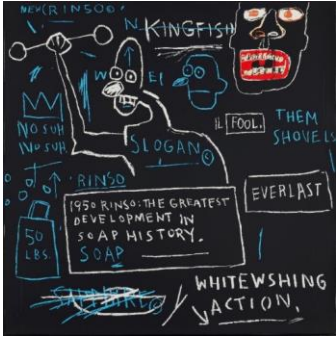 NEW (RINSO©)
N
KINGFISH
W
E
IL FOOL.
THEM
SHOVELS
NO SUH
NO SUH
SLOGAN©
RINSO
1950 RINSO: THE GREATEST
DEVELOPMENT IN
SOAP HISTORY.
SOAP
EVERLAST
50
LBS.
SAPPHIRE©
WHITEWSHING
ACTION.